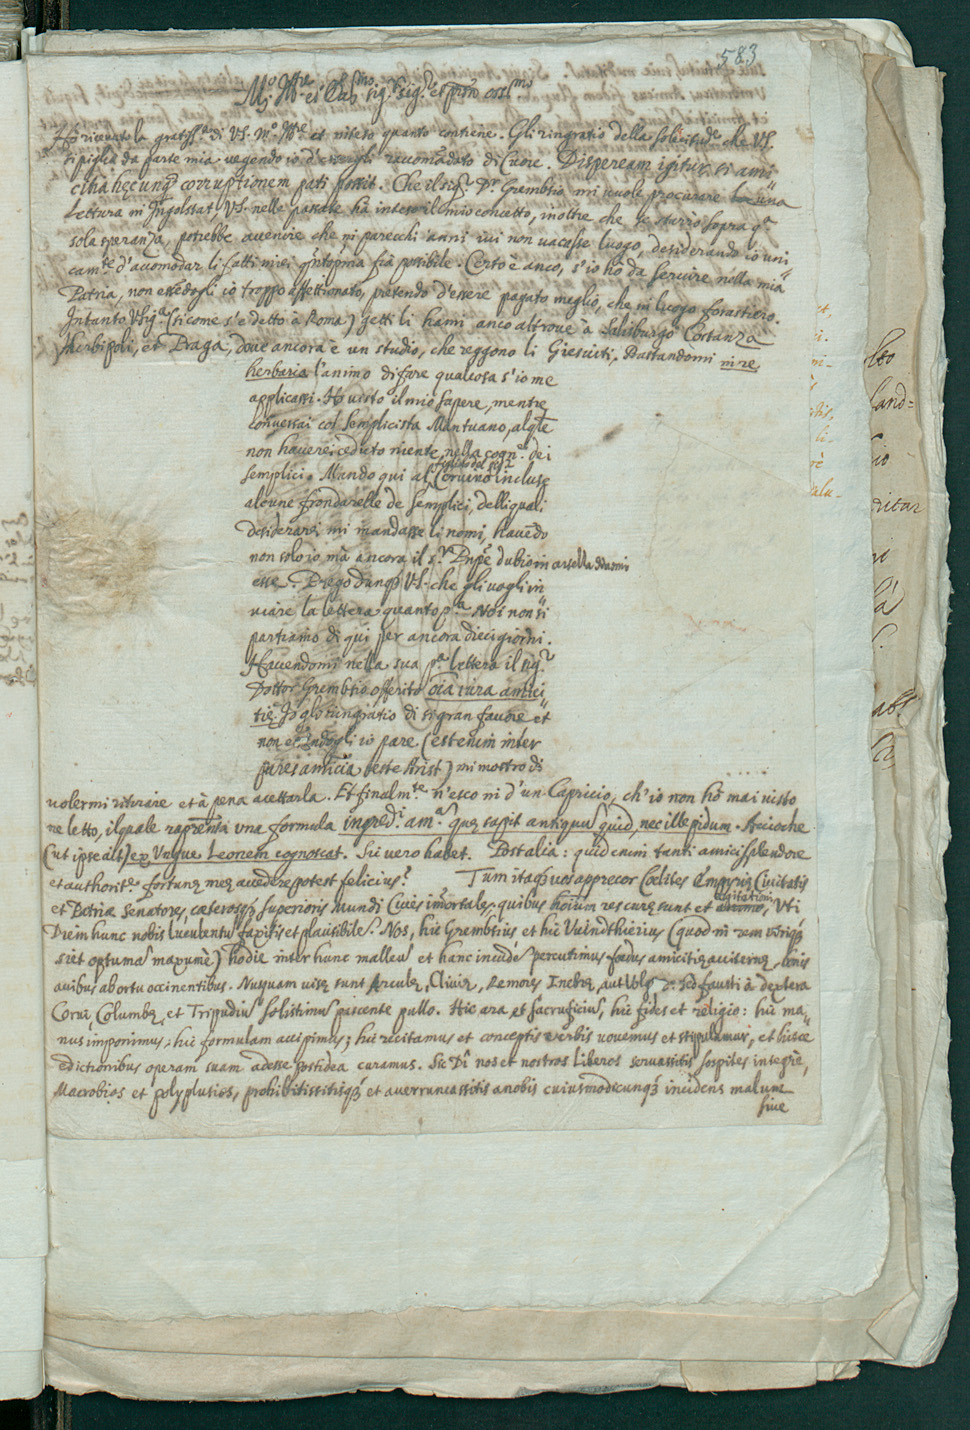 583
M.o Ill.re et Ecc.mo sig.r sig.r et pron oss.mo
Hò ricevuto la gratiss.a di VS. M.o Ill.re et inteso quanto contiene. Gli ringratio della solicitud.e che VS.
si piglia da parte mia vegendo io d'essergli racomãdato di Cuore. Dispeream igitur si ami
citia hęc unq̃ corruptionem pati possit. Che il sig.r D.r Grembtio mi vuole procurare una
Lettura in Ingolstat, VS. nelle passate hà inteso il mio concetto, inoltre che se sterio sopra q.a
sola speranza, potrebbe avenire che in parecchi anni ivi non vacasse luogo, desiderando io uni
cam.te d'accomodar li fatti miei q̃nto prima sia possibile. Certo è anco, s'io hò da servire nella mia
Patria, non essẽdogli io troppo affettionato, pretendo d'essere pagato meglio, che in luogo forastiero.
Intanto VSig.a (si come s'è detto à Roma) getti li hami anco altrove à Saliburgo Costanza
Herbipoli, et Praga, dove ancora è un studio, che reggono li Giesuiti, bastandomi in re
herbaria l'animo di fare qualcosa s'io me
applicassi. Hò visto il mio sapere, mentre
conversai col Semplicista Mantuano, al q̃le
non haverei ceduto niente nella cogn.e dei
semplici. Mando qui al Corvino incluse
alcune frondarelle de semplici, delli quali
desiderarei mi mandasse li nomi, havẽdo
non solo io mà ancora il s.r Dubio in
esse. Prego dunq̃ VS. che gli vogli in
viare la lettera quanto p.a Noi non si
partiamo di qui per ancora dieci giorni.
Havendomi nella sua p.a lettera il sig.r
Dottor Grembtio offerito oĩa iura amici
tię. Io glo ringratio di sì gran favore et
non essẽdogli io pare (est enim inter
pares amicitia teste Arist) mi mostro di
volermi ritirare et à pena accettarla. Et finalm.te n'esco in d'un Capricio, ch'io non hò mai visto
ne letto, il quale rapresẽta una formula ingred.i am.a quę sapit antiquũ quid, nec illepidum. Acioche
(ut ipse ait) ex ungue Leonem cognoscat. Sic vero habet. Postalia: quid enim tanti amici splendore
et authorit.e fortunę meę accedere potest felicius? Tum itaq̃ vos apprecor Coelites Empyrię Civitatis
et Patriæ Senatores, cæterosq̃ superioris Mundi Cives imõrtales, quibus hoĩum res curę sunt et , Uti
Diem hunc nobis luculentũ faxitis et plausibile. Nos, hic Grembtius et hic Vuindthierius (quod in rem utriq̃
siet optumũ maxumè) hodie inter hunc malleũ et hanc incudẽ percutimus foedus amicitię æviternę, bonis
avibus ab ortu occinentibus. Nusquam visę sunt Arculę, Cliviæ, Remores Inebrę, aut Volsgrę. Sed fausti à dextera
Corvi, Columbę, et Tripudiũ solistimũ pascente pullo. Hic ara, et sacrificiũ, hic fides et religio: hic ma
nus imponimus, hic formulam accipimus; hic recitamus et conceptis verbis vovemus et stipulamur, et hisce
edictionibus operam suam adesse postidea curamus. Sic Dĩ nos et nostros Liberos servassitis sospites integre,
Macrobios et polyplusios, prohibitissitisq̃ et averruncassitis à nobis cuiusmodicunq̃ incidens malum
sive